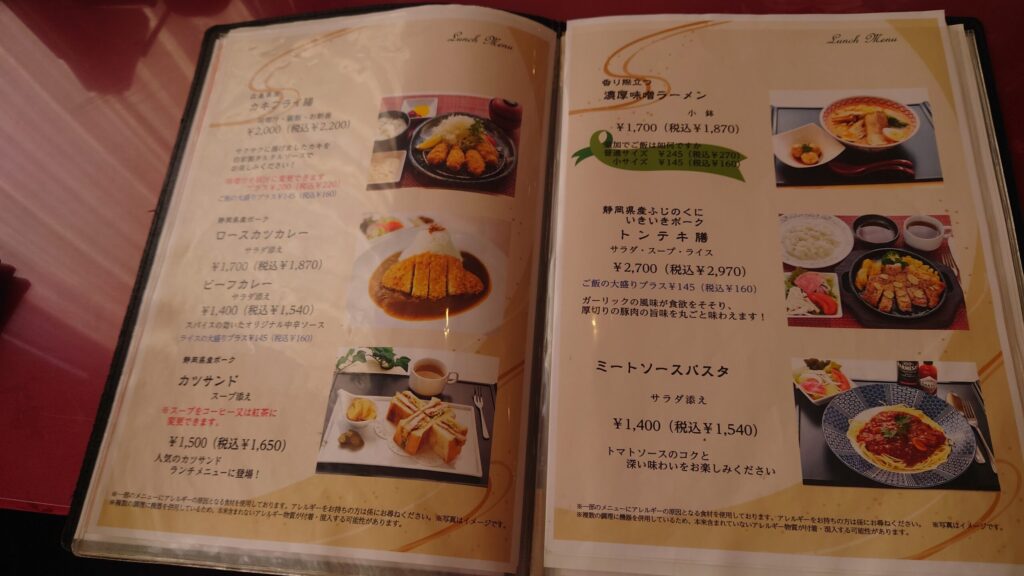 Lunch Menu
広島県産
カキフライ膳
味噌汁・御飯・お新香
¥2,000（税込¥2,200）
サクサクに揚げましたカキを
自家製タルタルソースで
お楽しみください！
プラス¥200（税込¥220）
ご飯の大盛りプラス¥145（税込¥160）
静岡県産ポーク
ロースカツカレー
サラダ添え
¥1,700（税込¥1,870）
ビーフカレー
サラダ添え
¥1,400（税込¥1,540）
スパイスの効いたオリジナル中辛ソース
ライスの大盛りプラス¥145（税込¥160）
静岡県産ポーク
カツサンド
スープ添え
※スープをコーヒー又は紅茶に
変更できます。
¥1,500（税込¥1,650）
人気のカツサンド
ランチメニューに登場！
※一部のメニューにアレルギーの原因となる食材を使用しております。アレルギーをお持ちの方は係にお尋ねください。 ※写真はイメージです。
※複数の調理に機器を併用しているため、本来含まれないアレルギー物質が付着・混入する可能性があります。
Lunch Menu
香り際立つ
濃厚味噌ラーメン
小鉢
¥1,700（税込¥1,870）
追加でご飯は如何ですか
普通サイズ ¥245（税込¥270）
小サイズ ¥145（税込¥160）
静岡県産ふじのくに
いきいきポーク
トンテキ膳
サラダ・スープ・ライス
¥2,700（税込¥2,970）
ご飯の大盛りプラス¥145（税込¥160）
ガーリックの風味が食欲をそそり、
厚切りの豚肉の旨味を丸ごと味わえます！
ミートソースパスタ
サラダ添え
¥1,400（税込¥1,540）
トマトソースのコクと
深い味わいをお楽しみください
※一部のメニューにアレルギーの原因となる食材を使用しております。アレルギーをお持ちの方は係にお尋ねください。 ※写真はイメージです。
※複数の調理に機器を併用しているため、本来含まれていないアレルギー物質が付着・混入する可能性があります。